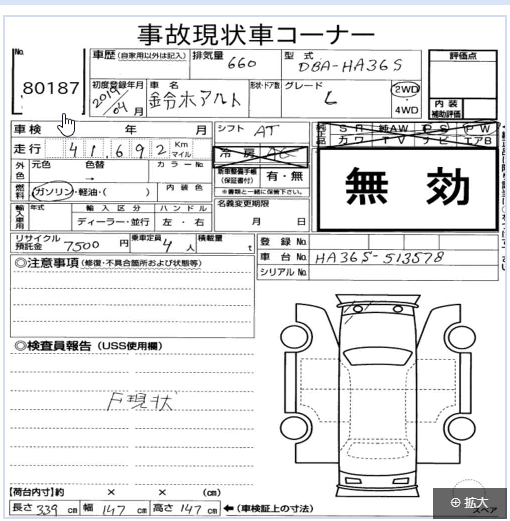 事故現状車コーナー
No. 80187
車歴 (自家用以外は記入) 排気量 660 型式 DBA-HA36S 評価点
初度登録年月 2019 04 月 車名 鈴木アルト 形状・ドア数 グレード L 2WD ・ 4WD 内装補助評価
車検 年 月 シフト AT 純正品 SR 純AW PS PW カワ TV ナビ エアB
走行 41,692 Km マイル 冷房 AC
外色 元色 色替 → カラーNo. 新車整備手帳 (保証書付) 有・無 ※書類と一緒に保管下さい。
無効
燃料 ガソリン・軽油・( ) 内装色 名義変更期限 月 日
輸入車用 年式 輸入区分 ディーラー・並行 ハンドル 左・右
リサイクル預託金 7500 円 乗車定員 4 人 積載量 t 登録No.
車台No. HA36S-513578
シリアルNo.
◎注意事項 (修復・不具合箇所および状態等)
◎検査員報告 (USS使用欄)
F現状
【荷台内寸】約 × × (cm)
長さ 339 cm 幅 147 cm 高さ 147 cm ←(車検証上の寸法)
スペア
拡大